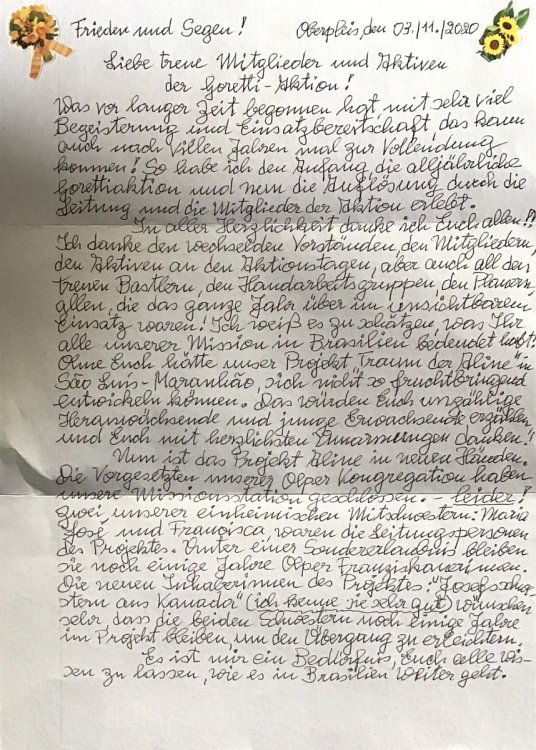 Frieden und Segen! Oberpleis, den 03./11./2020
Liebe treue Mitglieder und Aktiven
der Goretti-Aktion!
Was vor langer Zeit begonnen hat mit sehr viel
Begeisterung und Einsatzbereitschaft, das kann
auch nach vielen Jahren mal zur Vollendung
kommen! So habe ich den Anfang die alljährliche
Gorettiaktion und nun die Auflösung durch die
Leitung und die Mitglieder der Aktion erlebt.
In aller Herzlichkeit danke ich Euch allen!!
Ich danke den wechselnden Vorständen, den Mitgliedern,
den Aktiven an den Aktionstagen, aber auch all den
treuen Bastlern, den Handarbeitsgruppen, den Planern,
allen, die das ganze Jahr über im unsichtbaren
Einsatz waren! Ich weiß es zu schätzen, was Ihr
alle unserer Mission in Brasilien bedeutet habt!
Ohne Euch hätte unser Projekt "Traum der Aline" in
São Luis-Maranhão, sich nicht so fruchtbringend
entwickeln können. Das würden Euch unzählige
Heranwachsende und junge Erwachsende erzählen
und Euch mit herzlichsten Umarmungen danken!!
Nun ist das Projekt Aline in neuen Händen.
Die Vorgesetzten unserer Olper Kongregation haben
unsere Missionsstation geschlossen. - leider!
Zwei unserer einheimischen Mitschwestern: Maria
José und Francisca, waren die Leitungspersonen
des Projektes. Unter einer Sondererlaubnis bleiben
sie noch einige Jahre Olper Franziskanerinnen.
Die neuen Inhaberinnen des Projektes: "Josefschwe-
stern aus Kanada" (ich kenne sie sehr gut) wünschen
sehr, dass die beiden Schwestern noch einige Jahre
im Projekt bleiben, um den Übergang zu erleichtern.
Es ist mir ein Bedürfnis, Euch alle wis-
sen zu lassen, wie es in Brasilien weiter geht.